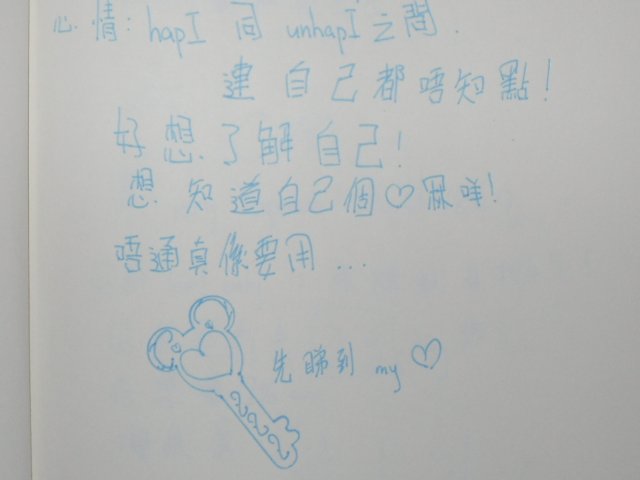 心情: hapI 同 unhapI 之間.
連自己都唔知點!
好想了解自己!
想知道自己個♡冧咩!
唔通真係要用...
先睇到 my ♡